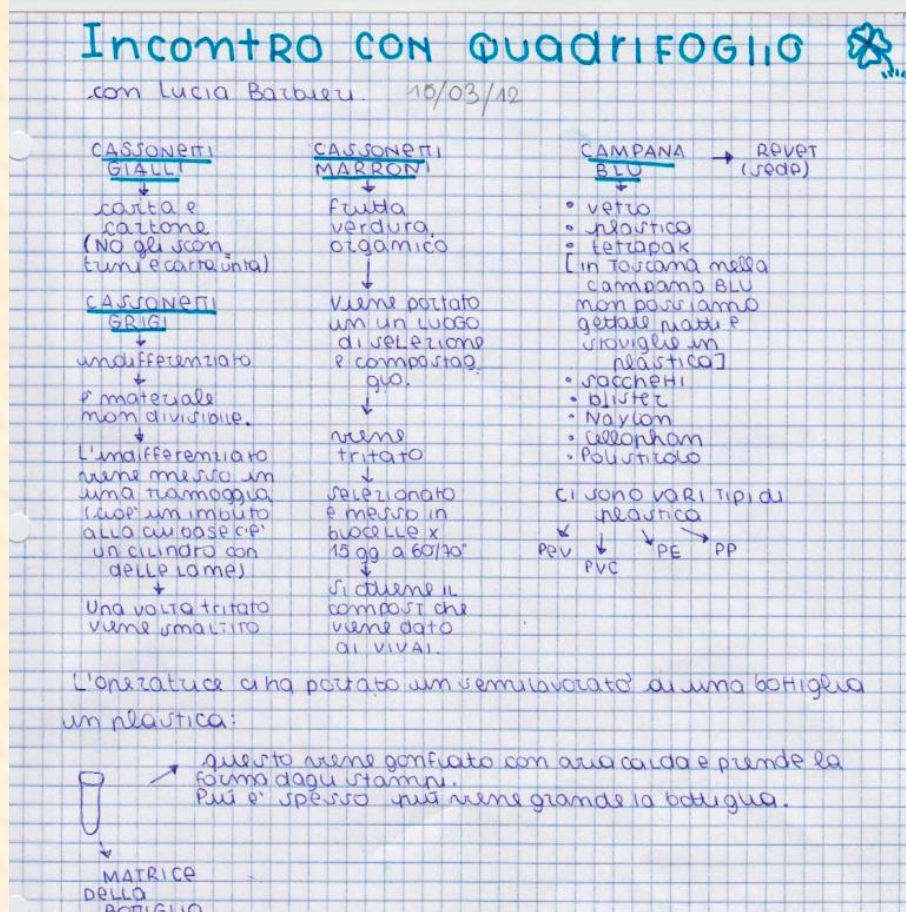 Incontro con Quadrifoglio
con Lucia Barbieri. 15/03/12
CASSONETTI
GIALLI
carta e
cartone
(NO gli scon
trini e carta unta)
CASSONETTI
GRIGI
indifferenziato
è materiale
non divisibile.
L'indifferenziato
viene messo in
una tramoggia
(cioè un imbuto
alla cui base c'è
un cilindro con
delle lame)
Una volta tritato
viene smaltito
CASSONETTI
MARRONI
frutta
verdura
organico
viene portato
in un luogo
di selezione
e compostag
gio.
viene
tritato
selezionato
e messo in
biocelle x
15 gg a 60/70°
Si ottiene il
compost che
viene dato
ai vivai.
CAMPANA → REVET
BLU (sede)
• vetro
• plastica
• tetrapak
[in Toscana nella
campana BLU
non possiamo
gettare piatti e
stoviglie in
plastica]
• sacchetti
• blister
• Naylon
• cellophan
• Polistirolo
Ci sono vari tipi di
plastica
PEV PVC PE PP
L'operatrice ci ha portato un semilavorato di una bottiglia
in plastica:
questo viene gonfiato con aria calda e prende la
forma dagli stampi.
Più è spesso più viene grande la bottiglia.
MATRICE
DELLA
BOTTIGLIA